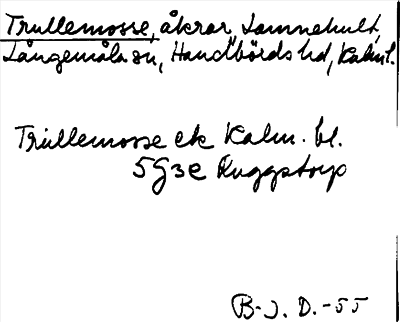 Trullemosse, åkrar, Lamnehult,
Långemåla sn, Handbörds hd, Kalm. l.
Trullemosse ek Kalm. bl.
5G3e Ruggstorp
B-J. D. -55